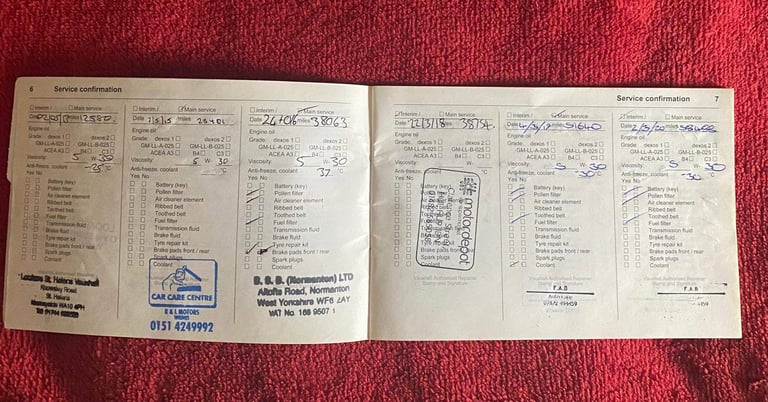 6 Service confirmation
Interim / Main service
Date miles 12580
Engine oil
Grade: dexos 1 dexos 2
GM-LL-A-025 GM-LL-B-025
ACEA A3 B4 C3
Viscosity 5 W- 30
Anti-freeze, coolant -25 °C
Yes No
Battery (key)
Pollen filter
Air cleaner element
Ribbed belt
Toothed belt
Fuel filter
Transmission fluid
Brake fluid
Tyre repair kit
Brake pads front / rear
Spark plugs
Coolant
St. Helens Vauxhall
St. Helens
Merseyside WA10 4PH
Interim / Main service
Date 7/5/15 miles
Engine oil
Grade: dexos 1 dexos 2
GM-LL-A-025 GM-LL-B-025
ACEA A3 B4 C3
Viscosity 5 W- 30
Anti-freeze, coolant °C
Yes No
Battery (key)
Pollen filter
Air cleaner element
Ribbed belt
Toothed belt
Fuel filter
Transmission fluid
Brake fluid
Tyre repair kit
Brake pads front / rear
Spark plugs
Coolant
CAR CARE CENTRE
R & L MOTORS
WIDNES
0151 4249992
Interim / Main service
Date miles 38063
Engine oil
Grade: dexos 1 dexos 2
GM-LL-A-025 GM-LL-B-025
ACEA A3 B4 C3
Viscosity 5 W- 30
Anti-freeze, coolant 37 °C
Yes No
Battery (key)
Pollen filter
Air cleaner element
Ribbed belt
Toothed belt
Fuel filter
Transmission fluid
Brake fluid
Tyre repair kit
Brake pads front / rear
Spark plugs
Coolant
(Normanton) LTD
Altofts Road, Normanton
West Yorkshire WF6 2AY
VAT No. 168 9507 1
Service confirmation 7
Interim / Main service
Date 12/3/18 miles
Engine oil
Grade: dexos 1 dexos 2
GM-LL-A-025 GM-LL-B-025
ACEA A3 B4 C3
Viscosity W-
Anti-freeze, coolant °C
Yes No
motordepot
Vauxhall Authorised Repairer
Stamp and Signature
Interim / Main service
Date miles 51640
Engine oil
Grade: dexos 1 dexos 2
GM-LL-A-025 GM-LL-B-025
ACEA A3 B4 C3
Viscosity 5 W- 30
Anti-freeze, coolant -30 °C
Yes No
Battery (key)
Pollen filter
Air cleaner element
Ribbed belt
Toothed belt
Fuel filter
Transmission fluid
Brake fluid
Tyre repair kit
Brake pads front / rear
Spark plugs
Coolant
F.A.B
Interim / Main service
Date 2/3/20 miles
Engine oil
Grade: dexos 1 dexos 2
GM-LL-A-025 GM-LL-B-025
ACEA A3 B4 C3
Viscosity 5 W- 30
Anti-freeze, coolant -30 °C
Yes No
Battery (key)
Pollen filter
Air cleaner element
Ribbed belt
Toothed belt
Fuel filter
Transmission fluid
Brake fluid
Tyre repair kit
Brake pads front / rear
Spark plugs
Coolant
F.A.B